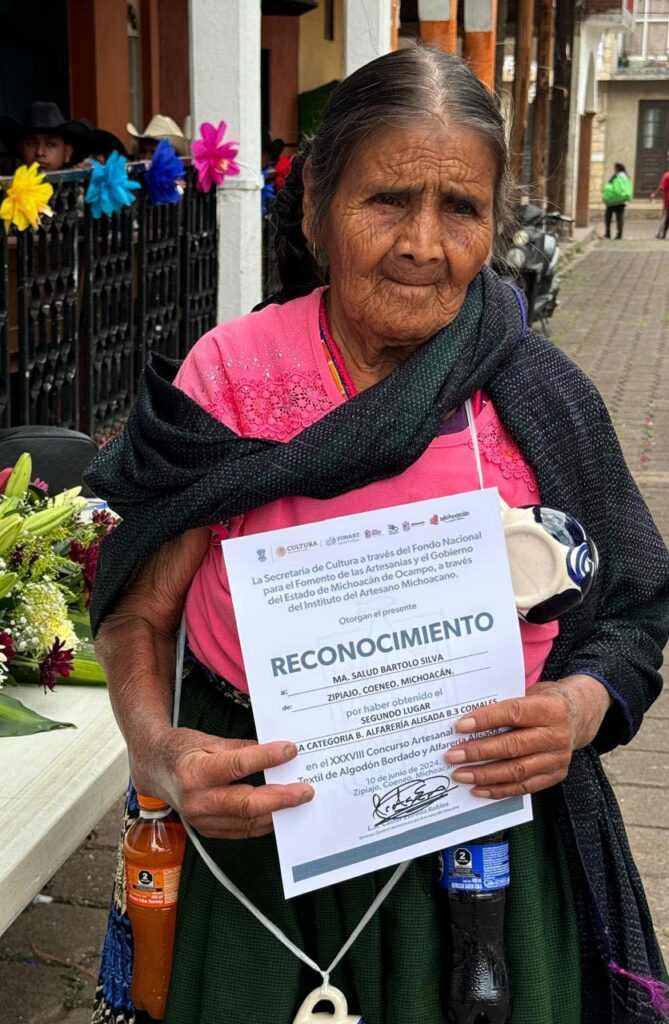 CULTURA
FONART
Michoacán
La Secretaría de Cultura a través del Fondo Nacional
para el Fomento de las Artesanías y el Gobierno
del Estado de Michoacán de Ocampo, a través
del Instituto del Artesano Michoacano.
Otorgan el presente
RECONOCIMIENTO
a: MA. SALUD BARTOLO SILVA
de: ZIPIAJO, COENEO, MICHOACÁN.
por haber obtenido el
SEGUNDO LUGAR
CATEGORIA B. ALFARERÍA ALISADA B.3 COMALES
en el XXXVIII Concurso Artesanal
Textil de Algodón Bordado y Alfarería Alisada
10 de junio de 2024
Zipiajo, Coeneo, Michoacán
Robles
2
2